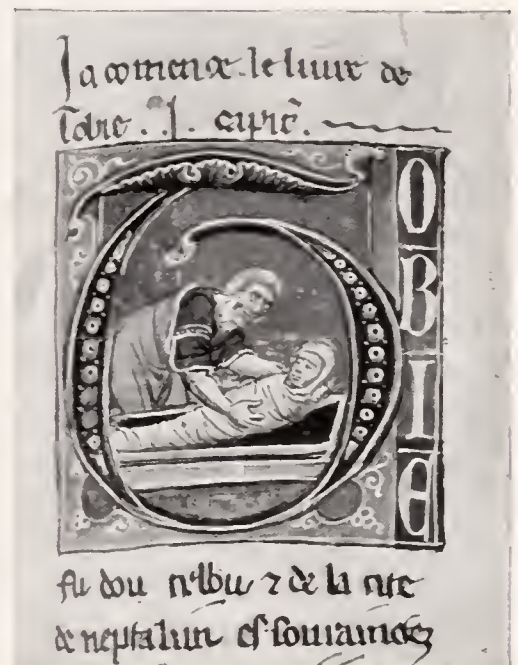 Ja comence le liure de
Tobie . I . capitle.
TOBIE
fu dou tribu ⁊ de la cite
de neptalim es souraines